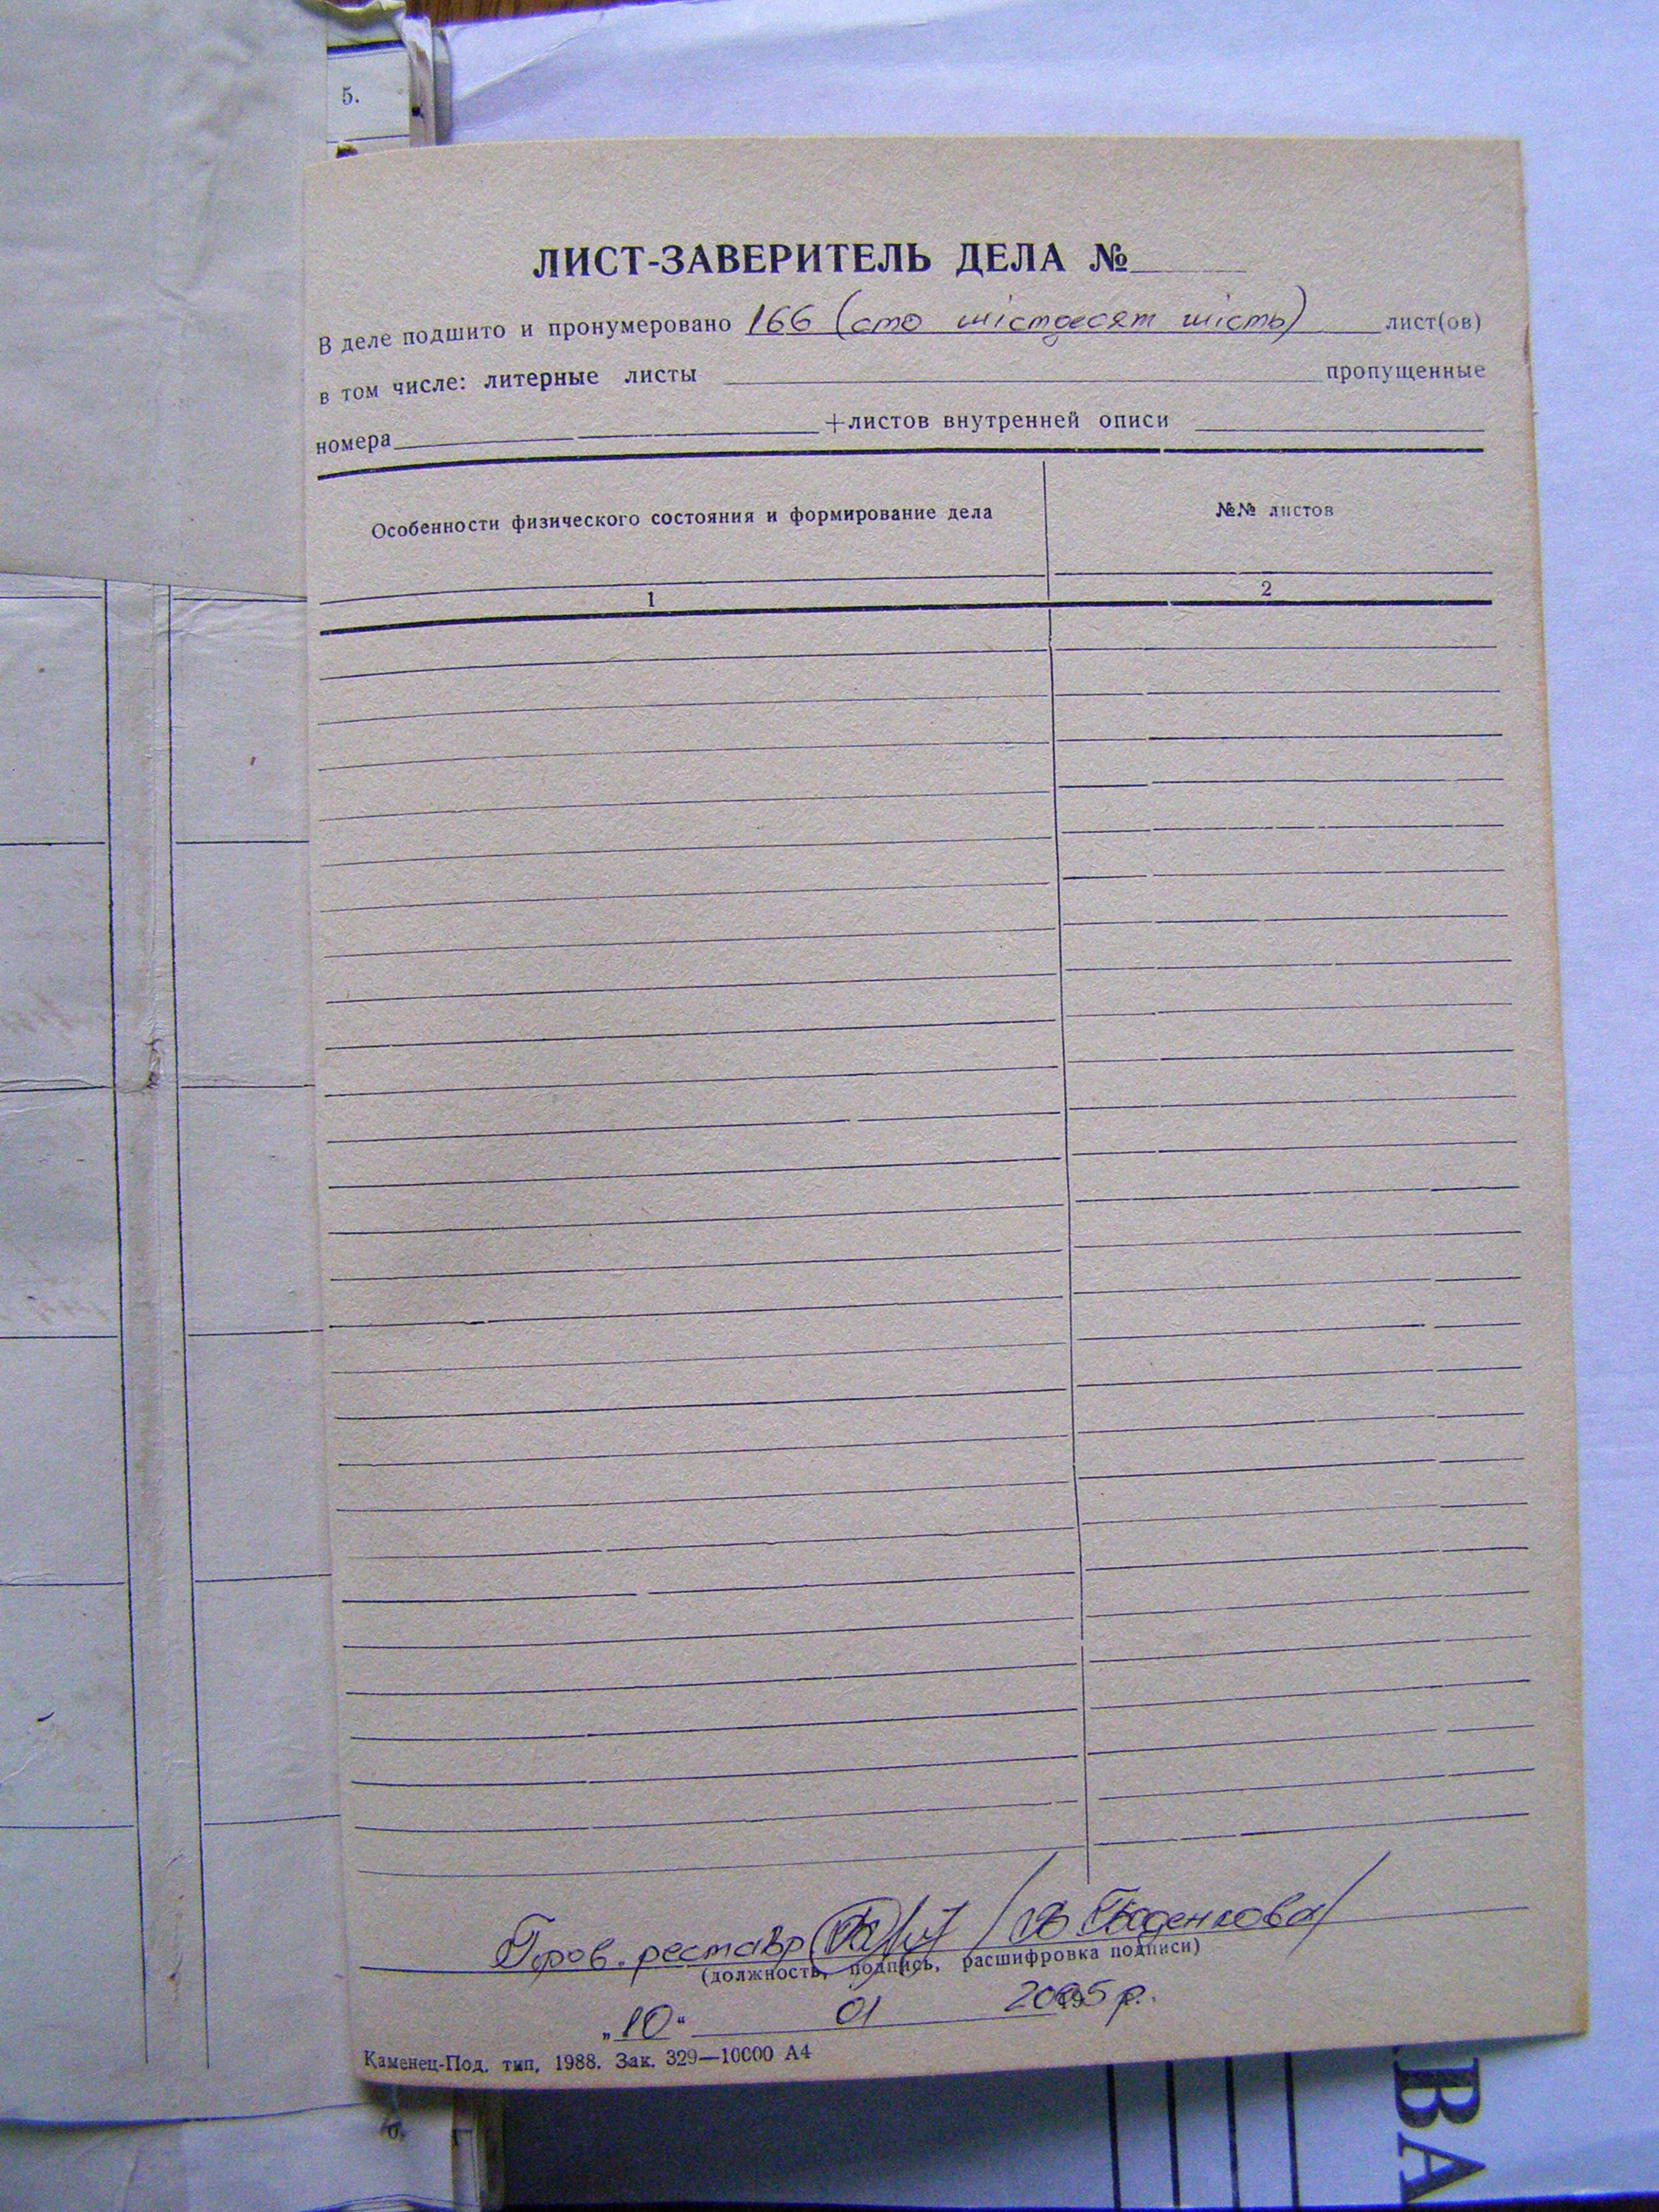 5.
ЛИСТ-ЗАВЕРИТЕЛЬ ДЕЛА №
В деле подшито и пронумеровано 166 (сто шістдесят шість) лист(ов)
в том числе: литерные листы пропущенные
номера +листов внутренней описи
Особенности физического состояния и формирование дела №№ листов
1 2
реставр
(должность, подпись, расшифровка подписи)
„10“ 01 2005 р.
Каменец-Под. тип, 1988. Зак. 329—10000 А4
6.
ВА